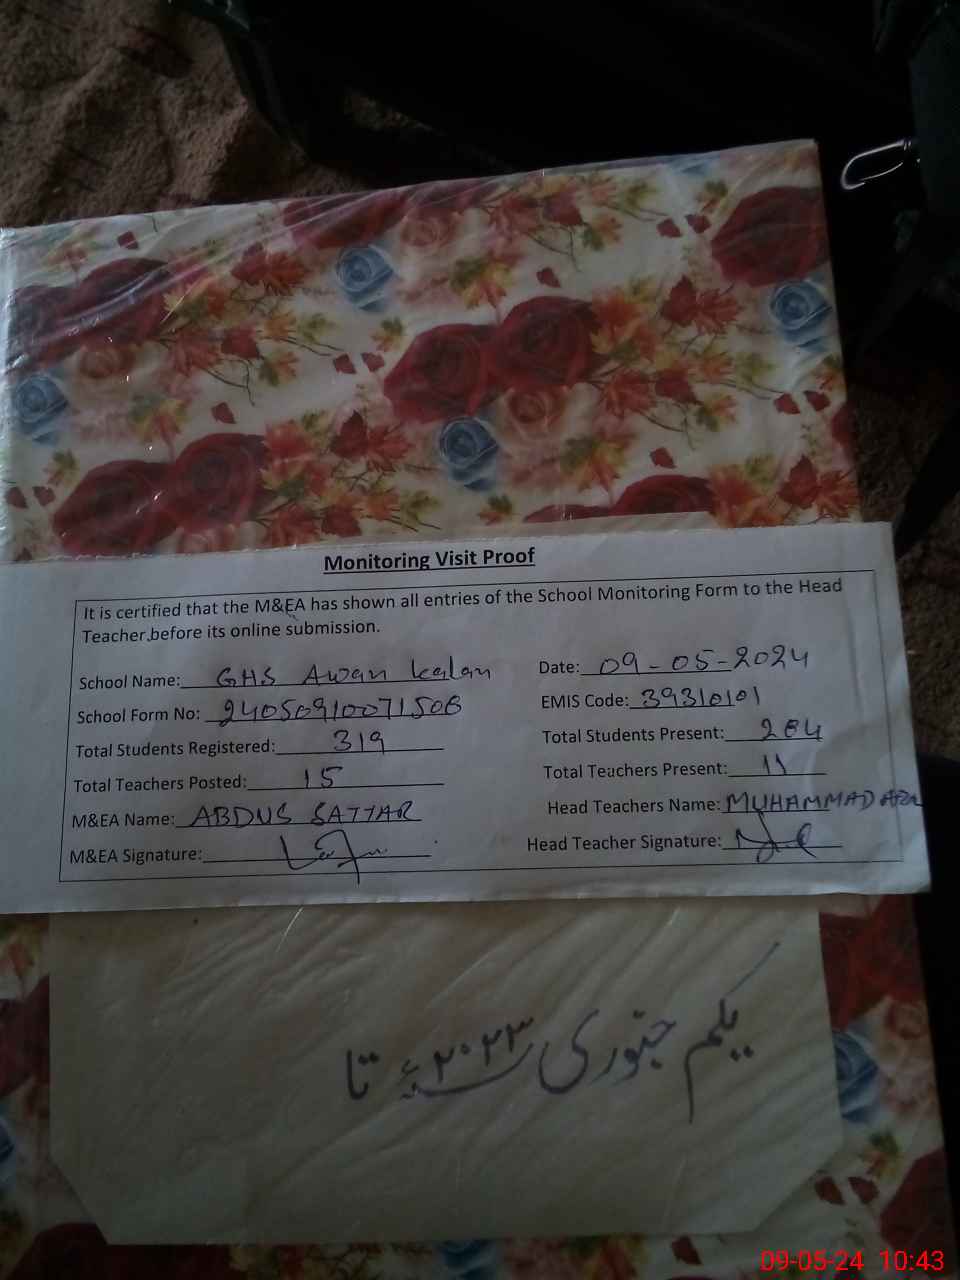 Monitoring Visit Proof
It is certified that the M&EA has shown all entries of the School Monitoring Form to the Head
Teacher before its online submission.
School Name: GHS Awan Kalan Date: 09-05-2024
School Form No: 24050910071506 EMIS Code: 39310101
Total Students Registered: 319 Total Students Present: 264
Total Teachers Posted: 15 Total Teachers Present: 11
M&EA Name: ABDUS SATTAR Head Teachers Name: MUHAMMAD
M&EA Signature: Head Teacher Signature:
یکم جنوری ۲۰۲۳ء تا
09-05-24 10:43